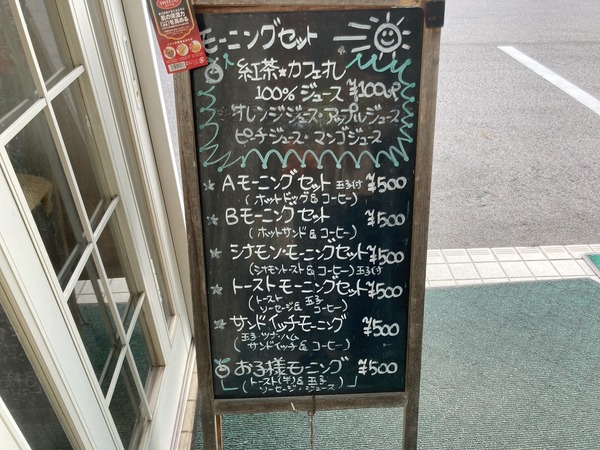 肌の弾力を高める
モーニングセット
紅茶★カフェオレ
100%ジュース ¥100UP
オレンジジュース・アップルジュース
ピーチジュース・マンゴジュース
Aモーニングセット 玉子付 ¥500
(ホットドッグ&コーヒー)
Bモーニングセット ¥500
(ホットサンド&コーヒー)
シナモン・モーニングセット ¥500
(シナモントースト&コーヒー)玉子付
トーストモーニングセット ¥500
(トースト 玉子
ソーセージ&コーヒー)
サンドイッチモーニング ¥500
(玉子 ツナ・ハム
サンドイッチ&コーヒー)
お子様モーニング ¥500
(トースト(半)&玉子
ソーセージ・ジュース)